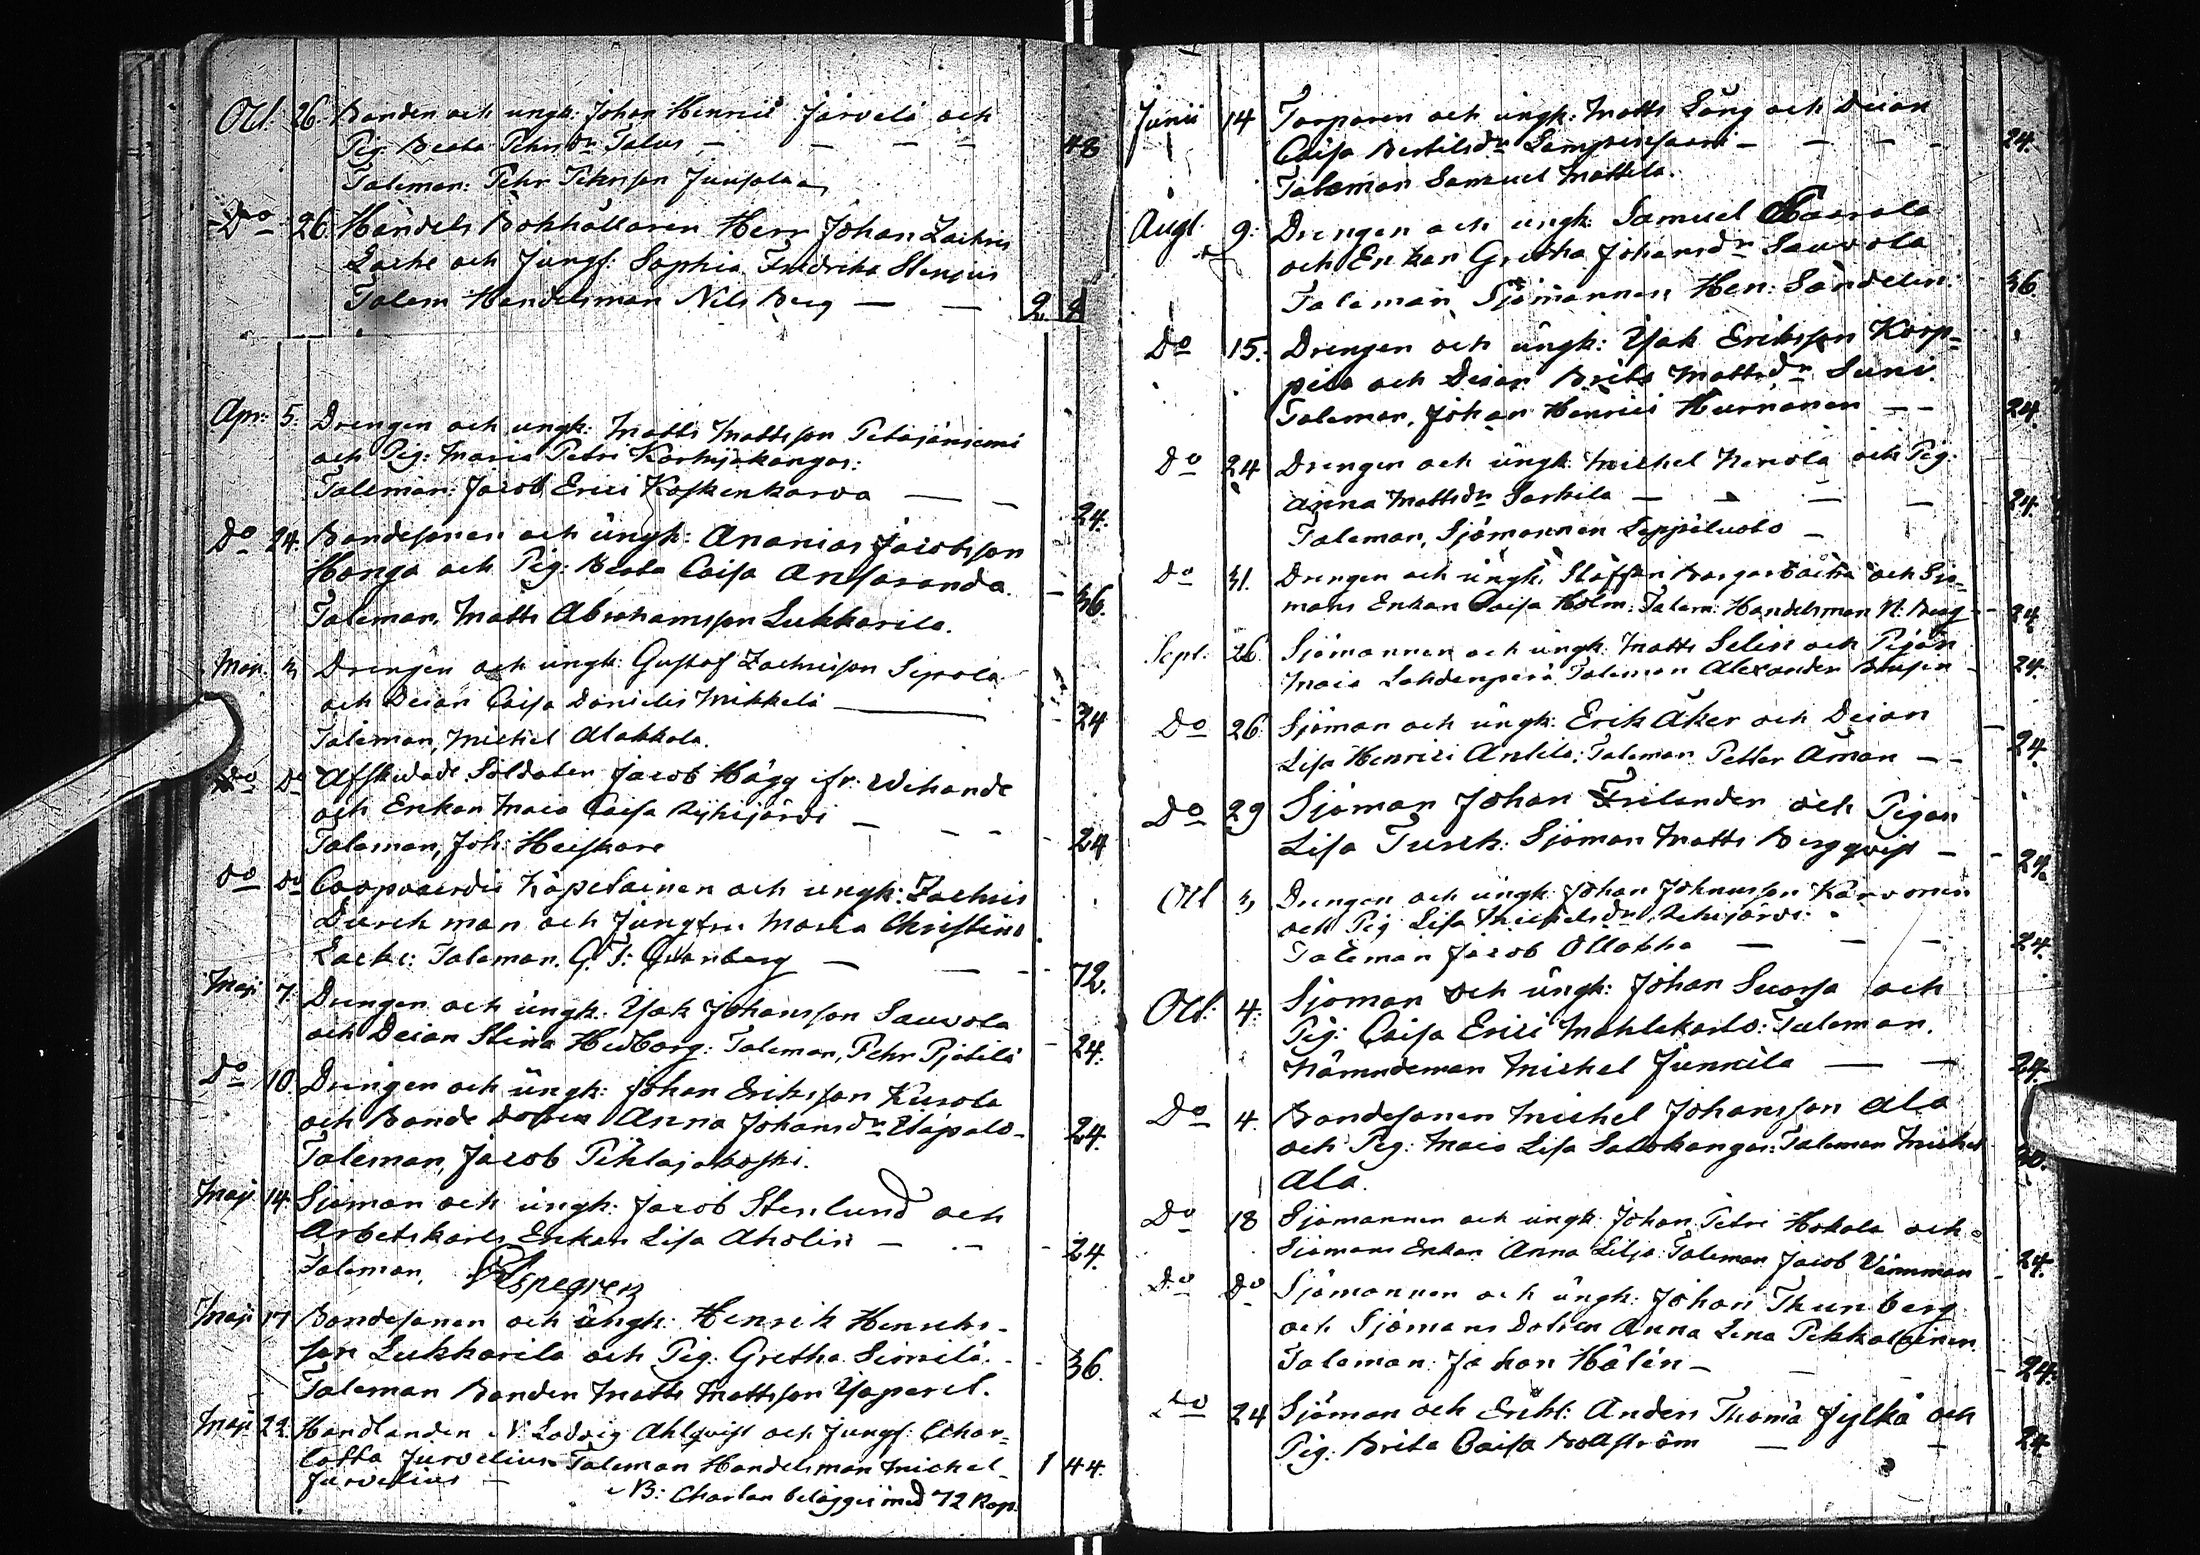 Oct: 26. Bonden och ungk: Johan Henrici Järvelä och
Pig. Beata Pehrsdr Talus — — — — 48
Taleman: Pehr Pehrsson Junsola
Do 26. Handels Bokhållaren Herr Johan Zachris
Lache och Jungf: Sophia Fredrika Stenius
Talem Handelsman Nils Berg — — 2
Apr: 5. Drengen och ungk: Matts Mattsson Petäjäniemi
och Pig: Maria Petri Karhijakangas:
Taleman: Jacob Erici Koskenkarva — — 24.
Do 24. Bondesonen och ungk: Ananias Jacobsson
Honga och Pig: Beata Caisa Ansaranda. — 36.
Taleman, Matts Abrahamsson Lukkarila.
Maj. 3 Drengen och ungk: Gustaf Zachrisson Sipola
och Deian Caisa Danielis Mikkelä — 24
Taleman, Michel Alakkola.
Do Do Afskedade Soldaten Jacob Hägg ifr: Wihande
och Enkan Maia Caisa Ryhijärvi — — — 24
Taleman, Joh: Heiskare
Do Do Coopvaerdie Kapetainen och ungk: Zachris
Durchman och Jungfru Maria Christina
Lacke: Taleman. G. F: Granberg — — — 72.
Maj 7. Drengen och ungk: Isak Johansson Sauvola
och Deian Stina Hedborg: Taleman, Pehr Pjetilä — 24.
Do 10. Drengen och ungk: Johan Eriksson Kusola
och Bonde Dotren Anna Johansdr Ylöpalo — 24.
Taleman, Jacob Pihlajakoski.
Maj 14. Sjöman och ungk: Jacob Stenlund och
Arbetskarls Enkan Lisa Aholin — — — 24.
Taleman, Aspegren
Maj 17 Bondesonen och ungk: Henrik Henriks-
son Lukkarila och Pig. Gretha Simila. — 36.
Taleman Bonden Matts Mattsson Yaparel.
Maj 22. Handlanden N: Lodvig Ahlqvist och Jungf: Char=
lotta Jurvelius Taleman Handelsman Michel 1 44.
Jurvelius — NB: Chartan belägges med 72 Kop.
Junii 14 Torparen och ungk: Matts Lång och Deian
Caisa Bertilsdr Lampinsaari — — — — 24.
Taleman Samuel Mattila.
Augt 9. Drengen och ungk: Samuel Haarala
och Enkan Gretha Johansdr Sauvola
Taleman, Sjömannen Hen: Sandelin: 36.
Do 15. Drengen och ungk: Isak Eriksson Korp=
pila och Deian Brita Mattsdr Suni.
Taleman, Johan Henrici Hurnanen — — 24.
Do 24 Drengen och ungk: Michel Nenola och Pig.
Anna Mattsdr Sarkila — — — — 24.
Taleman, Sjömannen Leppiluoto —
Do 31. Drengen och ungk: Staffan Bargarbacka och Sjö=
mans Enkan Caisa Holm: Talem: Handelsman N: Berg — 24.
Sept: 26. Sjömannen och ungk: Matts Selin och Pigan
Maia Lahdenperä Taleman Alexander — 24.
Do 26. Sjöman och ungk: Erik Åker och Deian
Lisa Henrici Antila: Taleman Petter Åman — — 24.
Do 29 Sjöman Johan Frilander och Pigan
Lisa Tursk: Sjöman Matts Bergqvist — — 24.
Oct 3 Drengen och ungk Johan Johansson Karvonen
och Pig Lisa Michelsdr Rehujärvi:
Taleman Jacob Ollakka — — — 24.
Oct: 4: Sjöman och ungk: Johan Suorsa och
Pig: Caisa Erici Mahlakarlo: Taleman.
Nämndeman Michel Junnila — — 24.
Do 4. Bondesonen Michel Johansson Ala
och Pig: Maia Lisa Salokangas: Taleman Michel
Ala.
Do 18 Sjömannen och ungk: Johan Petri Hokala och
Sjömans Enkan Anna Lilja: Taleman Jacob — 24.
Do Do Sjömannen och ungk: Johan Thunberg
och Sjömans Dotren Anna Lena Pekkalainen
Taleman: Johan Hålin — — — 24.
Do 24 Sjöman och Enkl: Anders Thoma Jylkä och
Pig. Brita Caisa Bollström — — 24